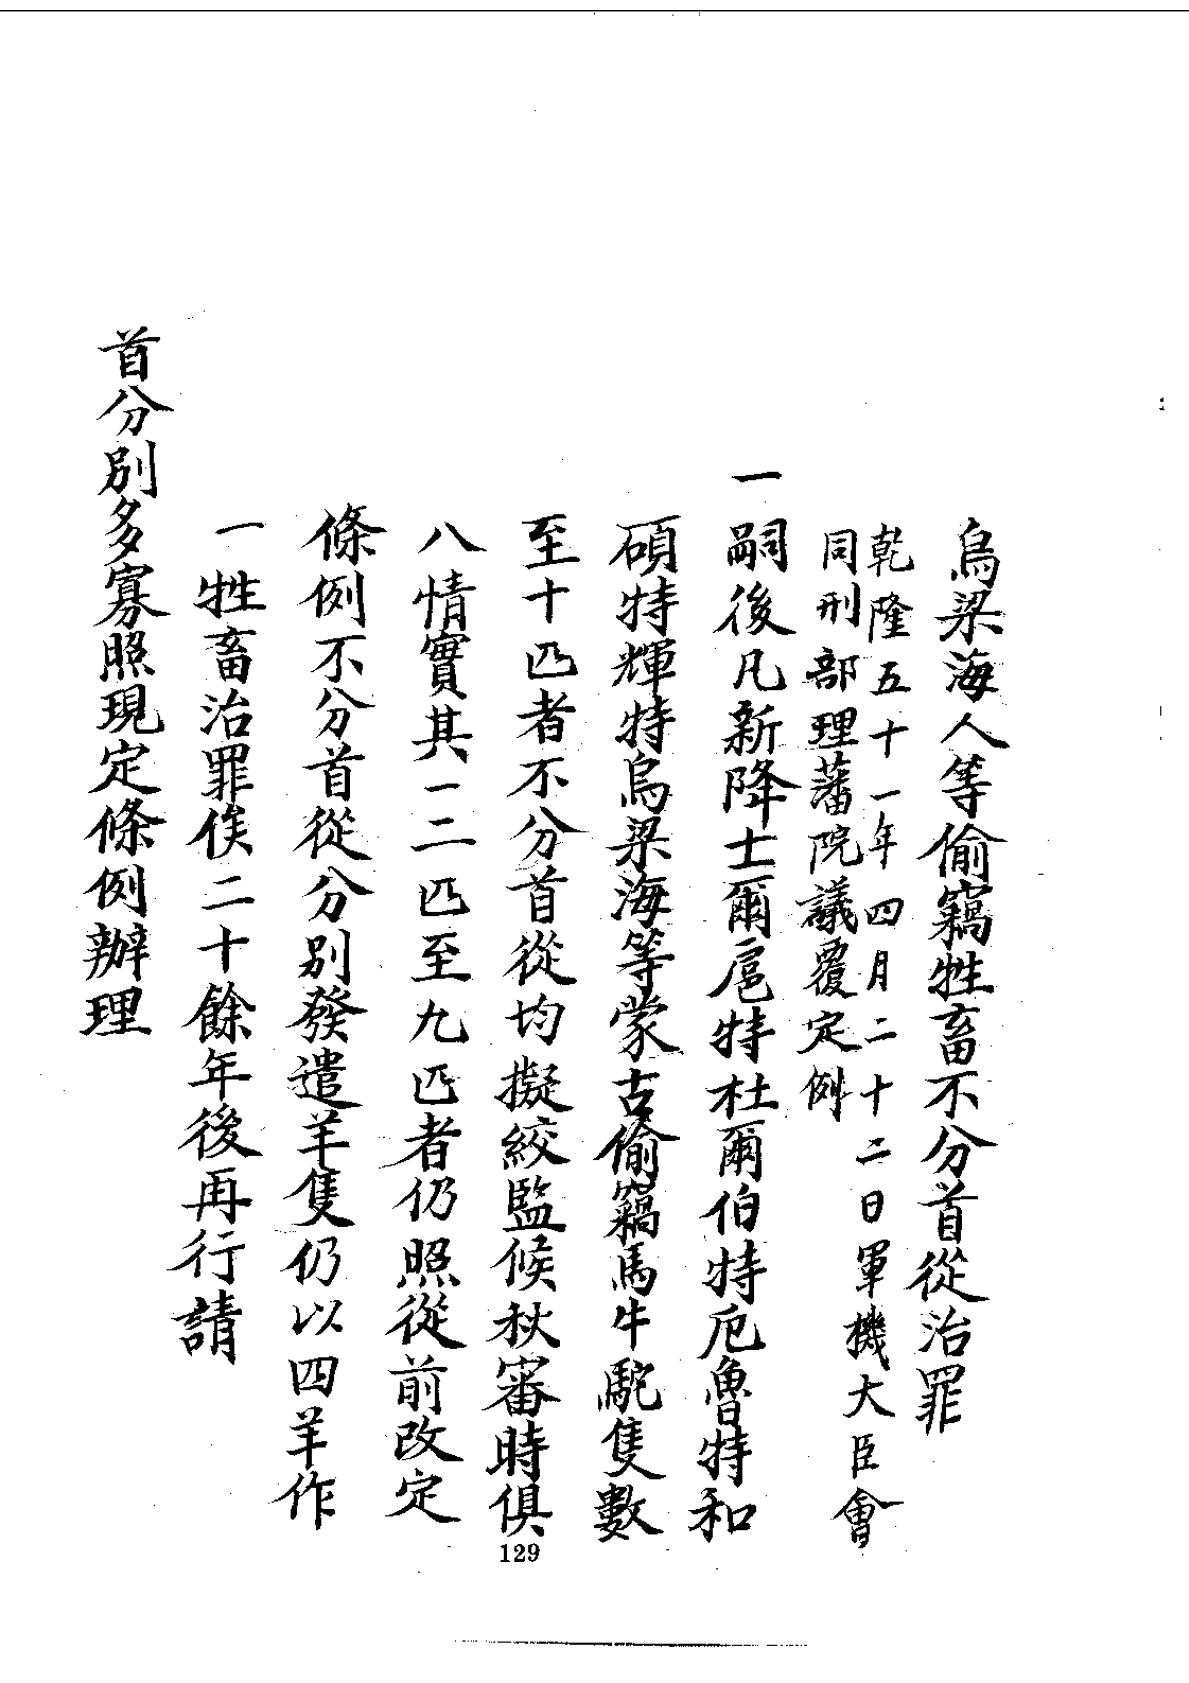 烏梁海人等偷竊牲畜不分首從治罪
乾隆五十一年四月二十二日軍機大臣會
同刑部理藩院議覆定例
一嗣後凡新降土爾扈特杜爾伯特厄魯特和
碩特輝特烏梁海等蒙古偷竊馬牛駝隻數
至十匹者不分首從均擬絞監候秋審時俱
八情實其一二匹至九匹者仍照從前改定
條例不分首從分別發遣羊隻仍以四羊作
一牲畜治罪俟二十餘年後再行請
首分別多寡照現定條例辦理
129